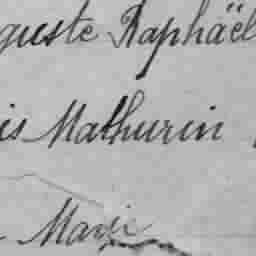 guste Raphaël
is Mathurin
Marie